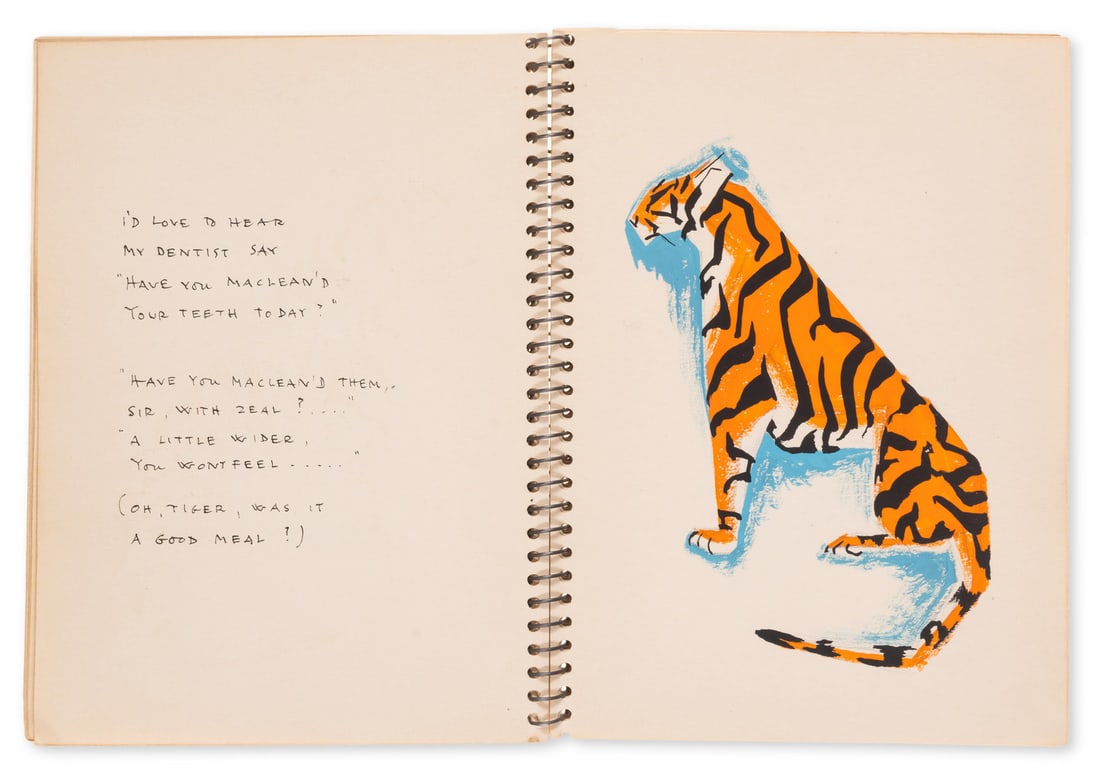 I'D LOVE TO HEAR
MY DENTIST SAY
"HAVE YOU MACLEAN'D
YOUR TEETH TODAY?"
"HAVE YOU MACLEAN'D THEM,
SIR, WITH ZEAL?...."
"A LITTLE WIDER,
YOU WONT FEEL ....."
(OH, TIGER, WAS IT
A GOOD MEAL?)